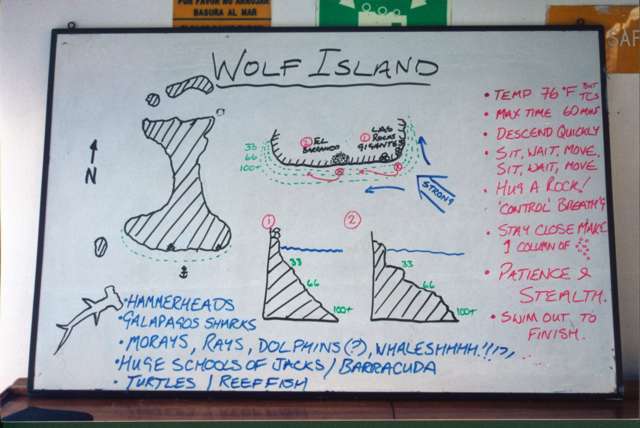 POR FAVOR NO ARROJAR
BASURA AL MAR
SAF
WOLF ISLAND
N
33
66
100+
② EL
BARRANCO
① LAS
ROCAS
GIGANTES
STRONG
①
33
66
100+
②
33
66
100+
• HAMMERHEADS
• GALAPAGOS SHARKS
• MORAYS, RAYS, DOLPHINS(?), WHALESHHHH.!!?,
• HUGE SCHOOLS OF JACKS / BARRACUDA
• TURTLES / REEF FISH
• TEMP 76°F BUT
TCS
• MAX TIME 60 MIN
• DESCEND QUICKLY
• SIT, WAIT, MOVE,
SIT, WAIT, MOVE
• HUG A ROCK!
'CONTROL' BREATH'G
• STAY CLOSE MAKE
1 COLUMN OF
• PATIENCE &
STEALTH.
• SWIM OUT TO
FINISH.